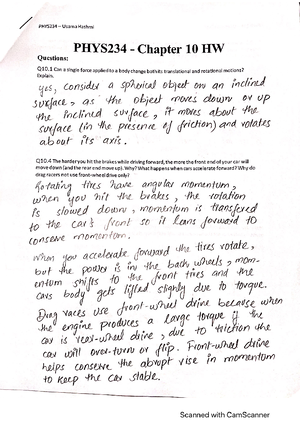 PHYS234 – Usama Hashmi
PHYS234 - Chapter 10 HW
Questions:
Q10.1 Can a single force applied to a body change both its translational and rotational motions?
Explain.
yes, consider a spherical object on an inclined
surface, as the object moves down or up
the inclined surface, it moves about the
surface (in the presence of friction) and rotates
about its axis.
Q10.4 The harder you hit the brakes while driving forward, the more the front end of your car will
move down (and the rear end move up). Why? What happens when cars accelerate forward? Why do
drag racers not use front-wheel drive only?
Rotating tires have angular momentum,
when you hit the brakes, the rotation
is slowed down, momentum is transfered
to the car's front so it leans forward to
conserve momentum.
when you accelerate forward the tires rotate,
but the power is in the back wheels, mom-
entum shifts to the front tires and the
cars body gets lifted slightly due to torque.
Drag races use front-wheel drive because when
the engine produces a large torque if the
car is rear-wheel drive, due to friction the
car will over-turn or flip. Front-wheel drive
helps conserve the abrupt rise in momentum
to keep the car stable.
Scanned with CamScanner